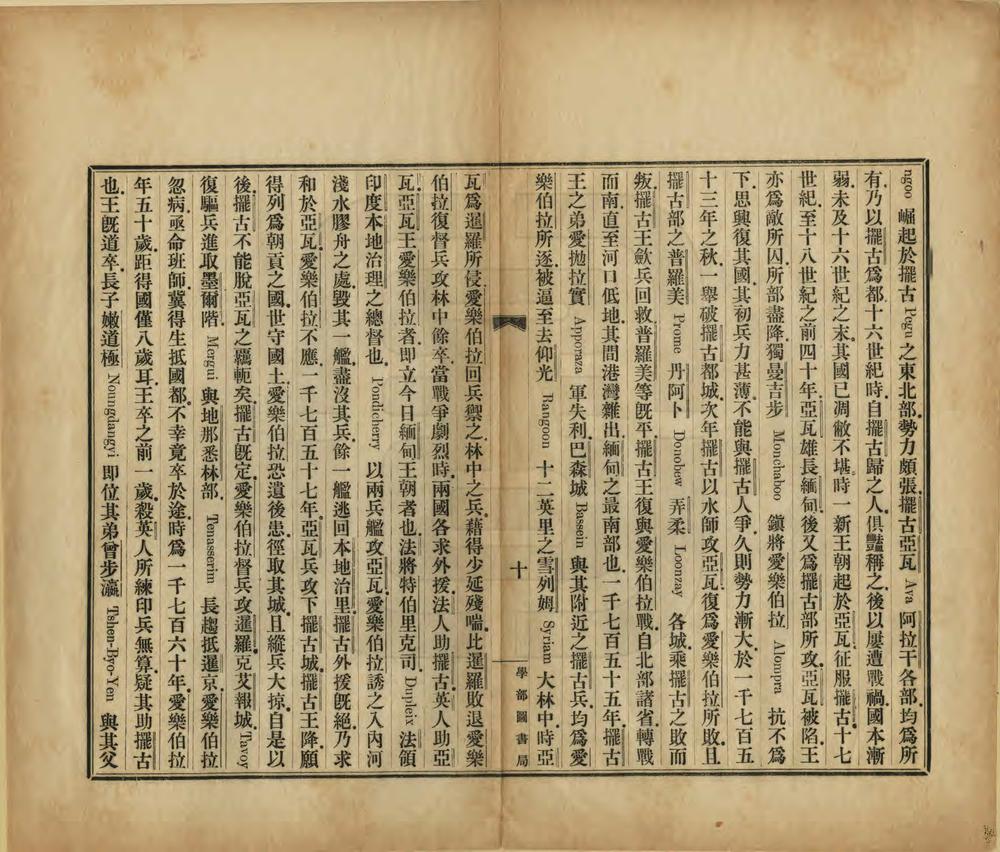 ngoo 崛起於擺古 Pegu 之東北部勢力頗張擺古亞瓦 Ava 阿拉干各部均爲所
有乃以擺古爲都十六世紀時自擺古歸之人俱豔稱之後以屢遭戰禍國本漸
弱未及十六世紀之末其國已凋敝不堪時一新王朝起於亞瓦征服擺古十七
世紀至十八世紀之前四十年亞瓦雄長緬甸後又爲擺古部所攻亞瓦被陷王
亦爲敵所囚所部盡降獨曼吉步 Monchaboo 鎭將愛樂伯拉 Alompra 抗不爲
下思興復其國其初兵力甚薄不能與擺古人爭久則勢力漸大於一千七百五
十三年之秋一舉破擺古都城次年擺古以水師攻亞瓦復爲愛樂伯拉所敗且
擺古部之普羅美 Prome 丹阿卜 Donobew 弄柔 Loonzay 各城乘擺古之敗而
叛擺古王歛兵回救普羅美等旣平擺古王復與愛樂伯拉戰自北部諸省轉戰
而南直至河口低地其間港灣雜出緬甸之最南部也一千七百五十五年擺古
王之弟愛拋拉實 Apporaza 軍失利巴森城 Bassein 與其附近之擺古兵均爲愛
樂伯拉所逐被逼至去仰光 Rangoon 十二英里之雪列姆 Syriam 大林中時亞
十
學部圖書局
瓦爲暹羅所侵愛樂伯拉回兵禦之林中之兵藉得少延殘喘比暹羅敗退愛樂
伯拉復督兵攻林中餘卒當戰爭劇烈時兩國各求外援法人助擺古英人助亞
瓦亞瓦王愛樂伯拉者即立今日緬甸王朝者也法將特伯里克司 Dupleix 法領
印度本地治理之總督也 Pondicherry 以兩兵艦攻亞瓦愛樂伯拉誘之入內河
淺水膠舟之處毀其一艦盡沒其兵餘一艦逃回本地治里擺古外援旣絕乃求
和於亞瓦愛樂伯拉不應一千七百五十七年亞瓦兵攻下擺古城擺古王降願
得列爲朝貢之國世守國土愛樂伯拉恐遺後患徑取其城且縱兵大掠自是以
後擺古不能脫亞瓦之羈軛矣擺古旣定愛樂伯拉督兵攻暹羅克艾報城 Tavoy
復驅兵進取墨爾階 Mergui 與地那悉林部 Tenasserim 長趨抵暹京愛樂伯拉
忽病亟命班師冀得生抵國都不幸竟卒於途時爲一千七百六十年愛樂伯拉
年五十歲距得國僅八歲耳王卒之前一歲殺英人所練印兵無算疑其助擺古
也王旣道卒長子嫩道極 Noungdangyi 即位其弟曾步瀛 Tshen-Byo-Yen 與其父